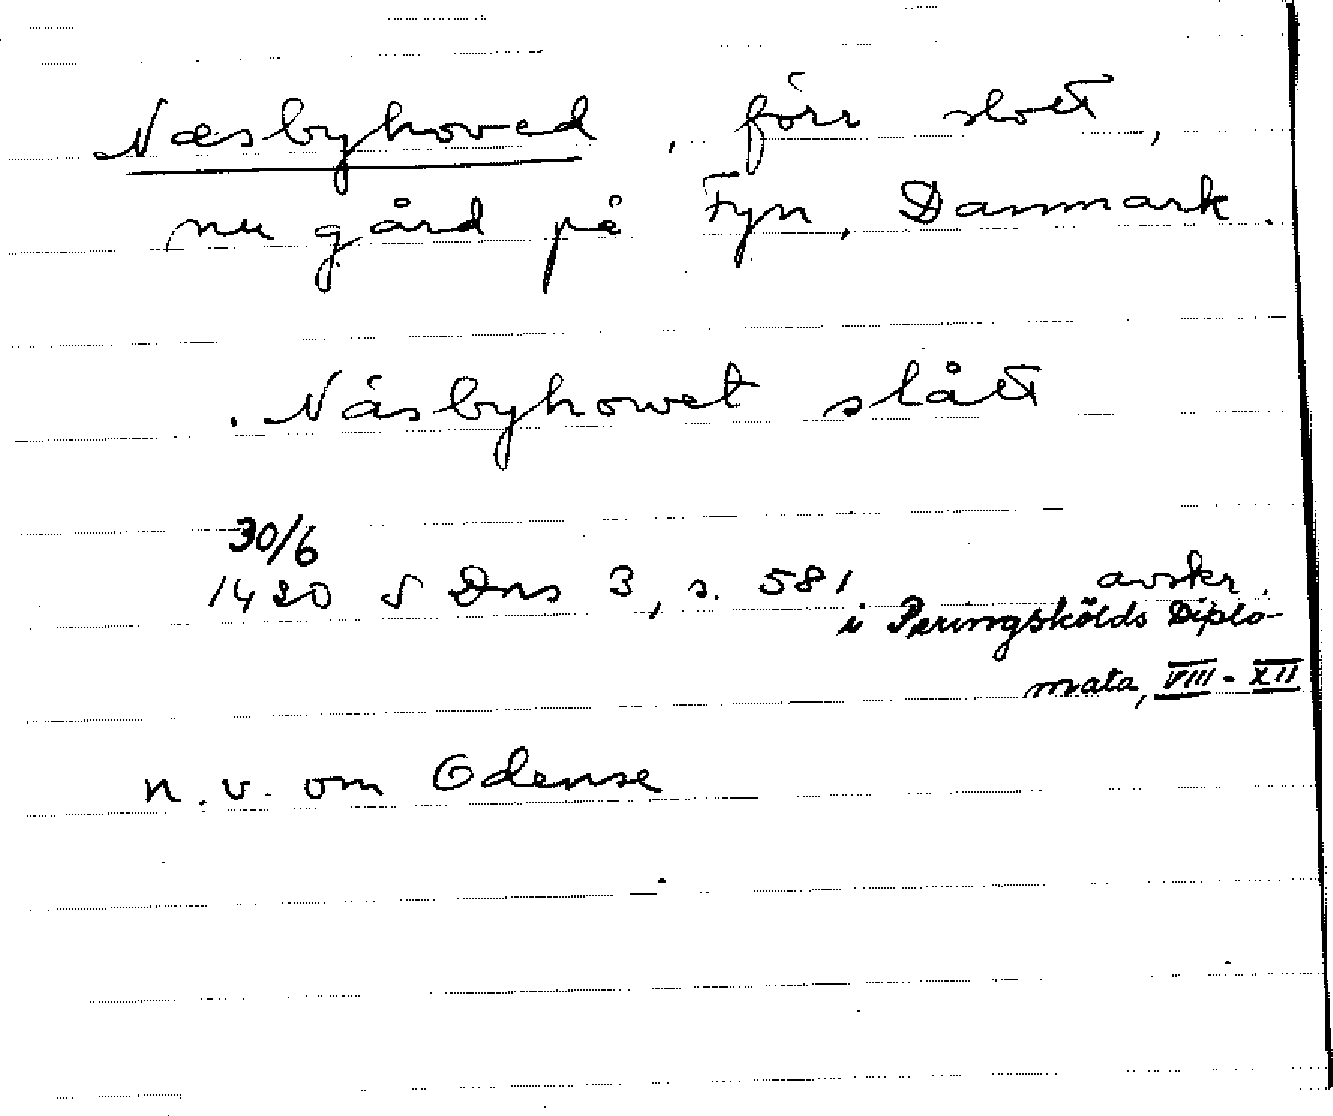 Næsbyhoved, förr slott,
nu gård på Fyn, Danmark.
Näsbyhowet slått
30/6
1420 S Dns 3, s. 581 avskr.
i Peringskölds Diplo-
mata, VIII - XII
n.v. om Odense